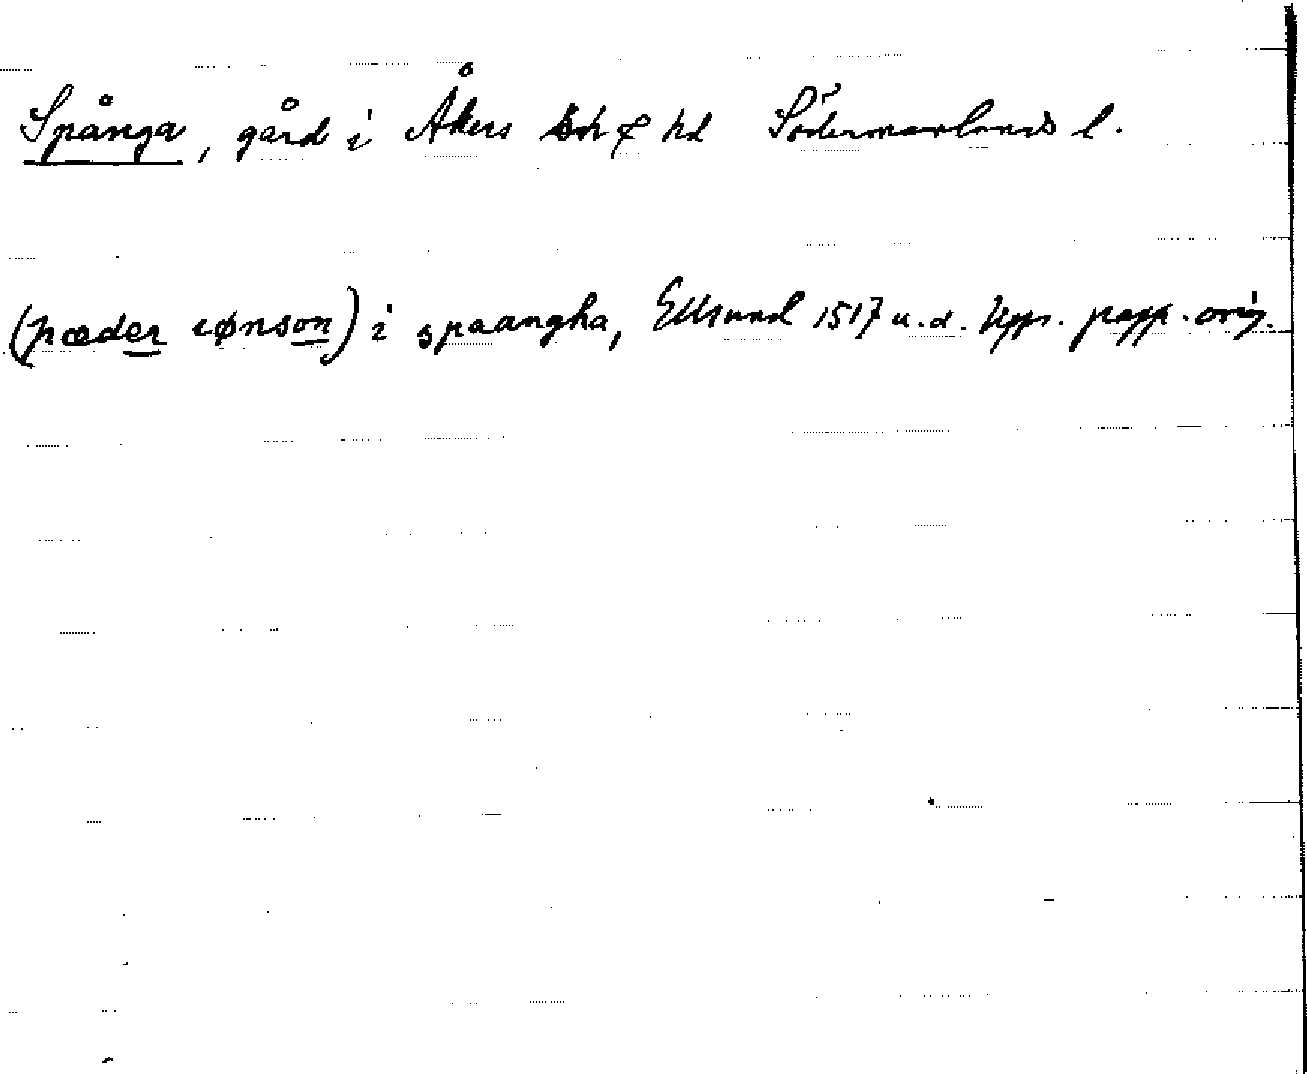 Spånga, gård i Åkers sn & hd Södermanlands l.
(pæder iønson) i spaangha, Ellsund 1517 u.d. Upps. papp. orig.